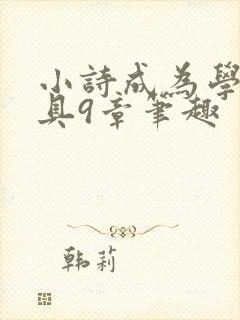 小詩成為學
具9章筆趣
韩莉